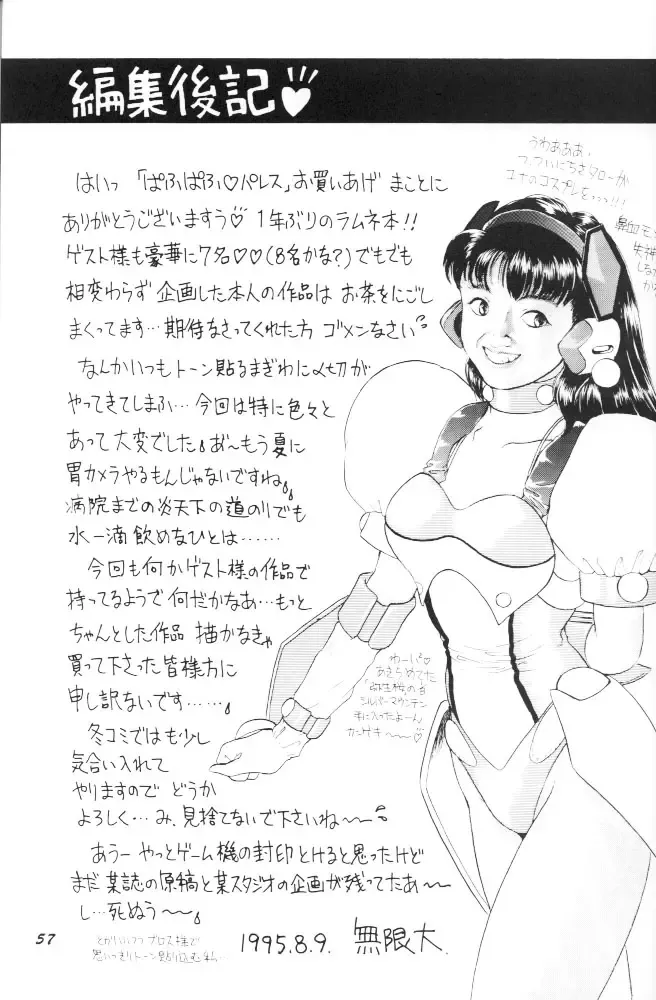 編集後記♡
はいっ「ぱふぱふ♡パレス」お買いあげ まことに
ありがとうございますう♡ 1年ぶりのラムネ本!!
ゲスト様も豪華に7名♡♡(8名かな?)でもでも
相変わらず 企画した本人の作品は お茶をにごし
まくってます…期待なさってくれた方 ゴメンなさい
なんかいつもトーン貼るまぎわに〆切が
やってきてしまふ…今回は特に色々と
あって大変でした。お〜もう夏に
胃カメラやるもんじゃないですね。
病院までの炎天下の道のりでも
水一滴 飲めなひとは……
今回も何かゲスト様の作品で
持ってるようで何だかなあ…もっと
ちゃんとした作品 描かなきゃ
買って下さった皆様方に
申し訳ないです……。
冬コミではも少し
気合い入れて
やりますので どうか
よろしく…み、見捨てないで下さいね〜〜
あうー やっとゲーム機の封印とけると思ったけど
まだ某誌の原稿と某スタジオの企画が残ってたあ〜
し…死ぬう〜〜。
うわぁぁぁ、
つ、ついにちさタローが
ユナのコスプレを…っっ!!!
鼻血モ
失神
わーい♡
あきらめてた
「弥生桜の白
シルバーマウンテン
手に入ったよーん
カンゲキ〜♡
とかいいつつ ブロス様で
思いっきりトーン貼り込む私…
1995.8.9. 無限大
57